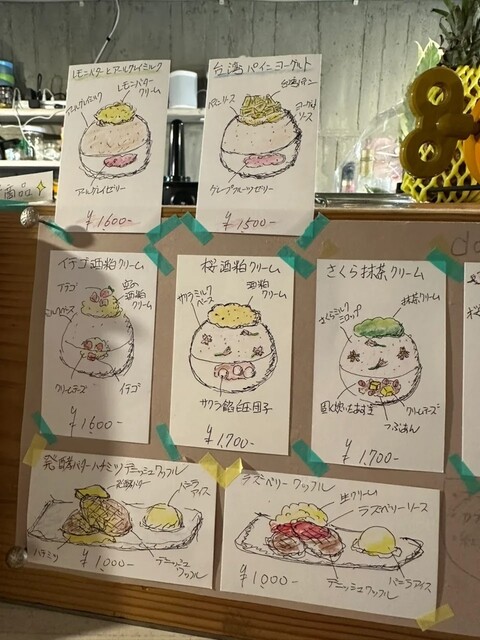 レモンバターとアールグレイミルク
アールグレイミルク
レモンバタークリーム
アールグレイゼリー
¥1600-
台湾パインヨーグルト
パインソース
台湾パイン
ヨーグルトソース
グレープフルーツゼリー
¥1500-
商品
イチゴ酒粕クリーム
イチゴ
酒粕クリーム
ミルクベース
クリームチーズ
イチゴ
¥1600-
桜酒粕クリーム
サクラミルクベース
酒粕クリーム
サクラ餡白玉団子
¥1,700-
さくら抹茶クリーム
さくらミルクシロップ
抹茶クリーム
クリームチーズ
つぶあん
¥1,700-
発酵バターハチミツデニッシュワッフル
発酵バター
バニラアイス
ハチミツ
デニッシュワッフル
¥1,000-
ラズベリーワッフル
生クリーム
ラズベリーソース
デニッシュワッフル
バニラアイス
¥1,000-